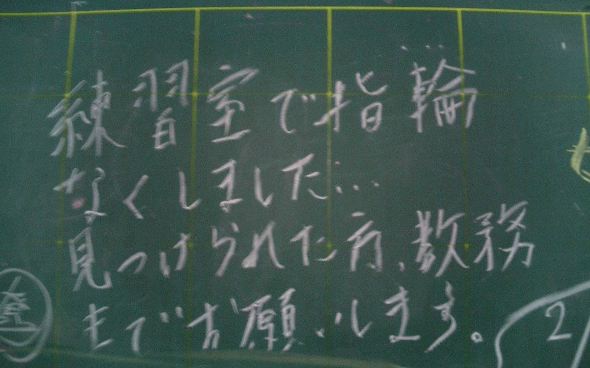 練習室で指輪
なくしました…
見つけられた方、教務
までお願いします。
2